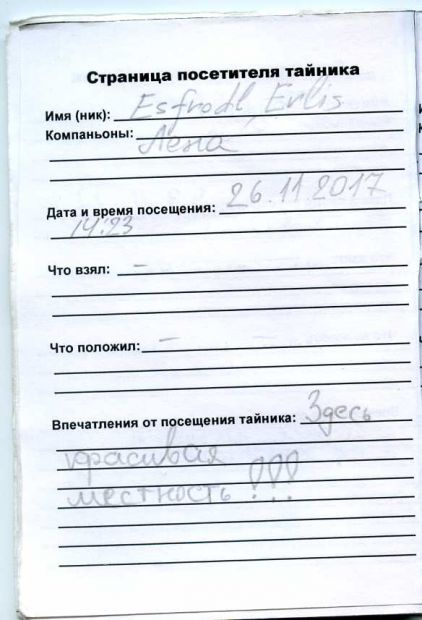 Страница посетителя тайника
Имя (ник): Esfrodl, Erlis
Компаньоны: Лена
Дата и время посещения: 26.11.2017
14:23
Что взял: –
Что положил: –
Впечатления от посещения тайника: Здесь
красивая
местность!!!